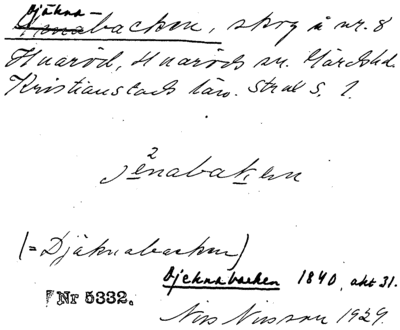 Djäkna-
backen, skog å nr. 8
Huaröd, Huaröds sn. Gärds hd.
Kristianstads län. Skåne 5. 1.
2
jenabaken
(= Djäknabacken)
Djeknabacken 1840, akt 31.
Nr 5332.
Nils Nilsson 1929.